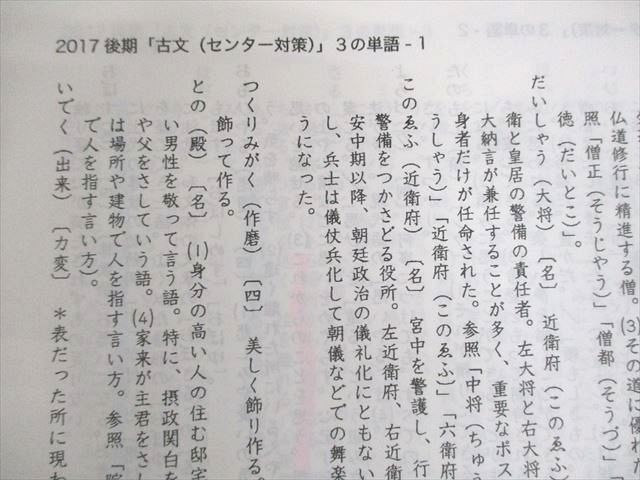 2017 後期「古文（センター対策）」３の単語 - 1
仏道修行に精進する僧。(3)その道に優れた
照「僧正（そうじやう）」「僧都（そうづ）」
徳（だいとこ）」。
だいしゃう（大将）〔名〕 近衛府（このゑふ）
衛と皇居の警備の責任者。左大将と右大将
大納言が兼任することが多く、重要なポス
身者だけが任命された。参照「中将（ちゅう
うしゃう）」「近衛府（このゑふ）」「六衛府
このゑふ（近衛府）〔名〕 宮中を警護し、行
警備をつかさどる役所。左近衛府、右近衛
安中期以降、朝廷政治の儀礼化にともない
し、兵士は儀仗兵化して朝儀などでの舞楽
うになった。
つくりみがく（作磨）〔四〕 美しく飾り作る。
飾って作る。
との（殿）〔名〕 (1)身分の高い人の住む邸宅
い男性を敬って言う語。特に、摂政関白を
や父をさしていう語。(4)家来が主君をさし
は場所や建物で人を指す言い方。参照「院
て人を指す言い方）。
いでく（出来）〔カ変〕 ＊表だった所に現わ